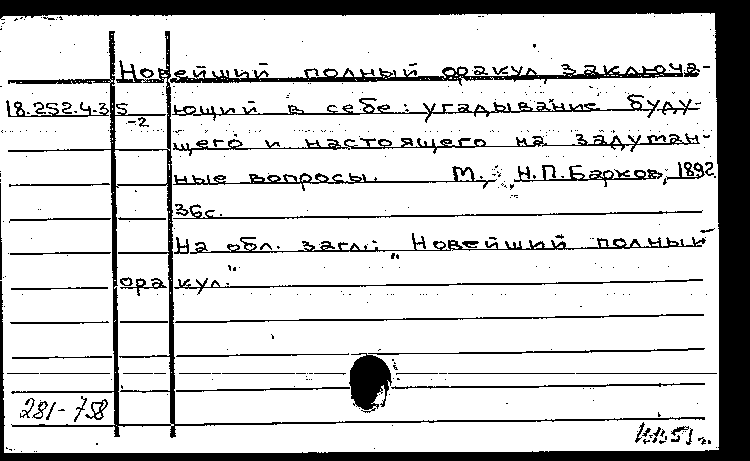 Новейший полный оракул, заключа-
18.252.4.35
-2
ющий в себе: угадывание буду-
щего и настоящего на задуман-
ные вопросы. М., Н.П. Барков, 1892
36с.
На обл. загл.: „Новейший полный
оракул."
281-758